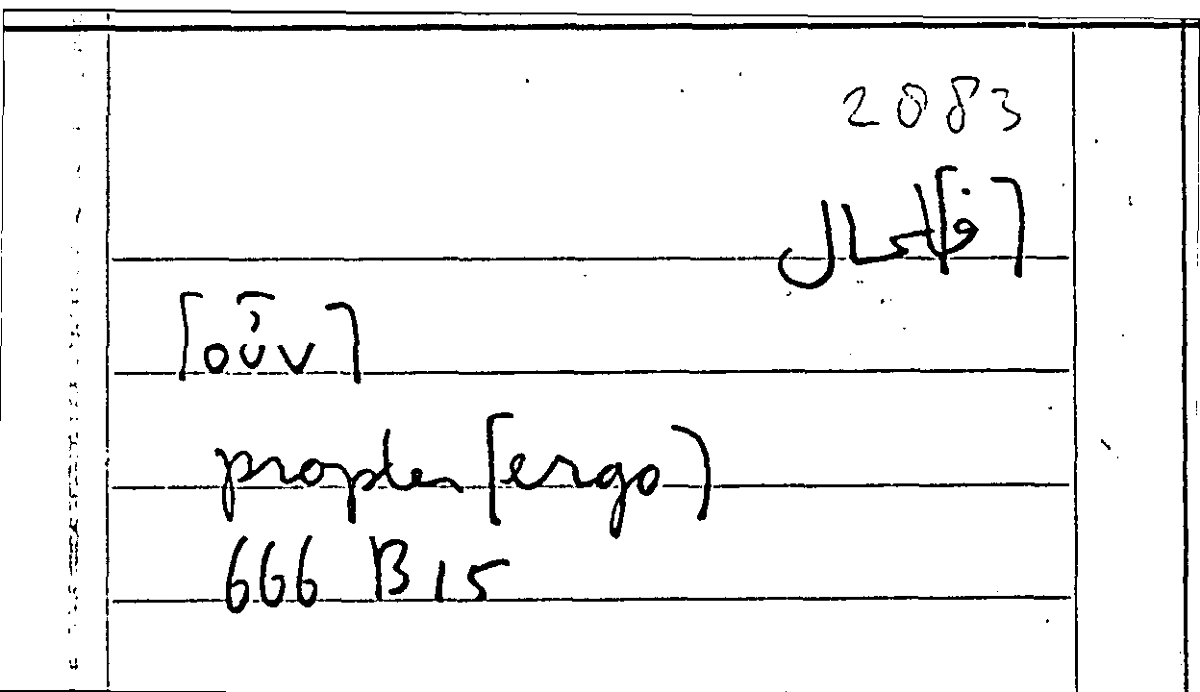 2083
[ف]لحال
[οὖν]
propter [ergo]
666 B 15